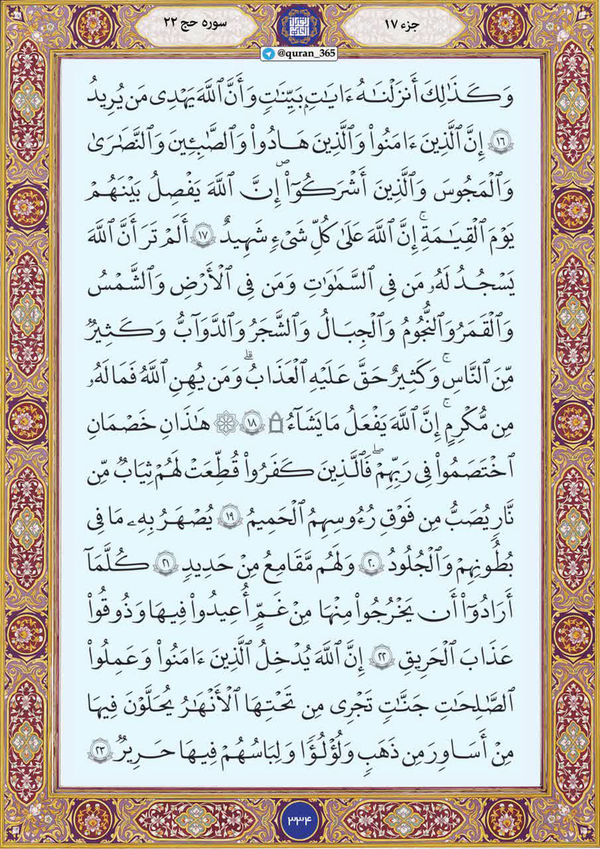 جزء ۱۷
سوره حج ۲۲
@quran_365
وَكَذَٰلِكَ أَنزَلْنَٰهُ ءَايَٰتٍۭ بَيِّنَٰتٍ وَأَنَّ ٱللَّهَ يَهْدِى مَن يُرِيدُ
۱۶ إِنَّ ٱلَّذِينَ ءَامَنُوا۟ وَٱلَّذِينَ هَادُوا۟ وَٱلصَّٰبِـِٔينَ وَٱلنَّصَٰرَىٰ
وَٱلْمَجُوسَ وَٱلَّذِينَ أَشْرَكُوٓا۟ إِنَّ ٱللَّهَ يَفْصِلُ بَيْنَهُمْ
يَوْمَ ٱلْقِيَٰمَةِ ۚ إِنَّ ٱللَّهَ عَلَىٰ كُلِّ شَىْءٍ شَهِيدٌ ۱۷ أَلَمْ تَرَ أَنَّ ٱللَّهَ
يَسْجُدُ لَهُۥ مَن فِى ٱلسَّمَٰوَٰتِ وَمَن فِى ٱلْأَرْضِ وَٱلشَّمْسُ
وَٱلْقَمَرُ وَٱلنُّجُومُ وَٱلْجِبَالُ وَٱلشَّجَرُ وَٱلدَّوَآبُّ وَكَثِيرٌ
مِّنَ ٱلنَّاسِ ۖ وَكَثِيرٌ حَقَّ عَلَيْهِ ٱلْعَذَابُ ۗ وَمَن يُهِنِ ٱللَّهُ فَمَا لَهُۥ
مِن مُّكْرِمٍ ۚ إِنَّ ٱللَّهَ يَفْعَلُ مَا يَشَآءُ ۩ ۱۸ ۞ هَٰذَانِ خَصْمَانِ
ٱخْتَصَمُوا۟ فِى رَبِّهِمْ ۖ فَٱلَّذِينَ كَفَرُوا۟ قُطِّعَتْ لَهُمْ ثِيَابٌ مِّن
نَّارٍ يُصَبُّ مِن فَوْقِ رُءُوسِهِمُ ٱلْحَمِيمُ ۱۹ يُصْهَرُ بِهِۦ مَا فِى
بُطُونِهِمْ وَٱلْجُلُودُ ۲۰ وَلَهُم مَّقَٰمِعُ مِنْ حَدِيدٍ ۲۱ كُلَّمَآ
أَرَادُوٓا۟ أَن يَخْرُجُوا۟ مِنْهَا مِنْ غَمٍّ أُعِيدُوا۟ فِيهَا وَذُوقُوا۟
عَذَابَ ٱلْحَرِيقِ ۲۲ إِنَّ ٱللَّهَ يُدْخِلُ ٱلَّذِينَ ءَامَنُوا۟ وَعَمِلُوا۟
ٱلصَّٰلِحَٰتِ جَنَّٰتٍ تَجْرِى مِن تَحْتِهَا ٱلْأَنْهَٰرُ يُحَلَّوْنَ فِيهَا
مِنْ أَسَاوِرَ مِن ذَهَبٍ وَلُؤْلُؤًا ۖ وَلِبَاسُهُمْ فِيهَا حَرِيرٌ ۲۳
۳۳۴